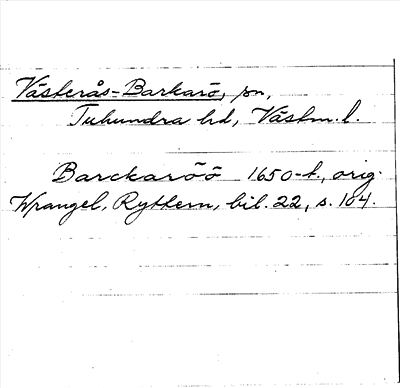 Västerås-Barkarö, sn,
Tuhundra hd, Västm. l.
Barckaröö 1650-t., orig.
Wrangel, Ryttern, bil. 22, s. 104.